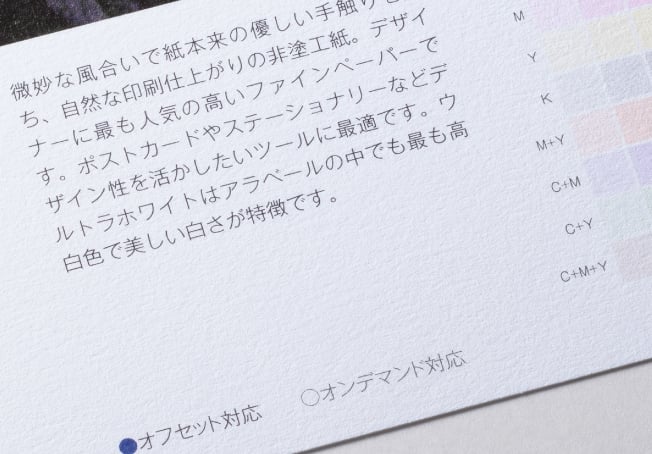 微妙な風合いで紙本来の優しい手触り
ち、自然な印刷仕上がりの非塗工紙。デザイ
ナーに最も人気の高いファインペーパーで
す。ポストカードやステーショナリーなどデ
ザイン性を活かしたいツールに最適です。ウ
ルトラホワイトはアラベールの中でも最も高
白色で美しい白さが特徴です。
M
Y
K
M+Y
C+M
C+Y
C+M+Y
●オフセット対応
○オンデマンド対応